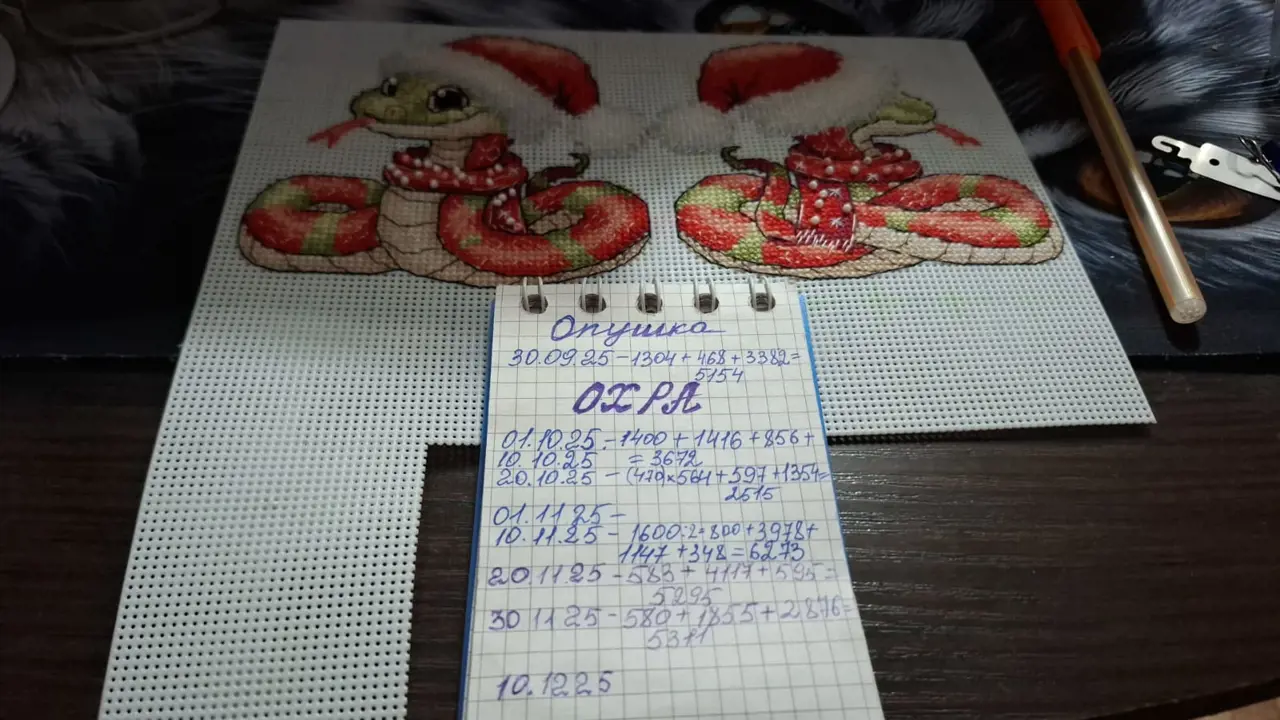 Опушка
30.09.25-1304+468+3382=
5154
ОХРА
01.10.25-1400+1416+856+
10.10.25 =3672
20.10.25 -(470)x564+597+1354=
2515
01.11.25-
10.11.25-1600:2=800+3978+
1147+348=6273
20.11.25-583+4117+595=
5295
30 11 25-580+1855+2876=
5311
10.12 25